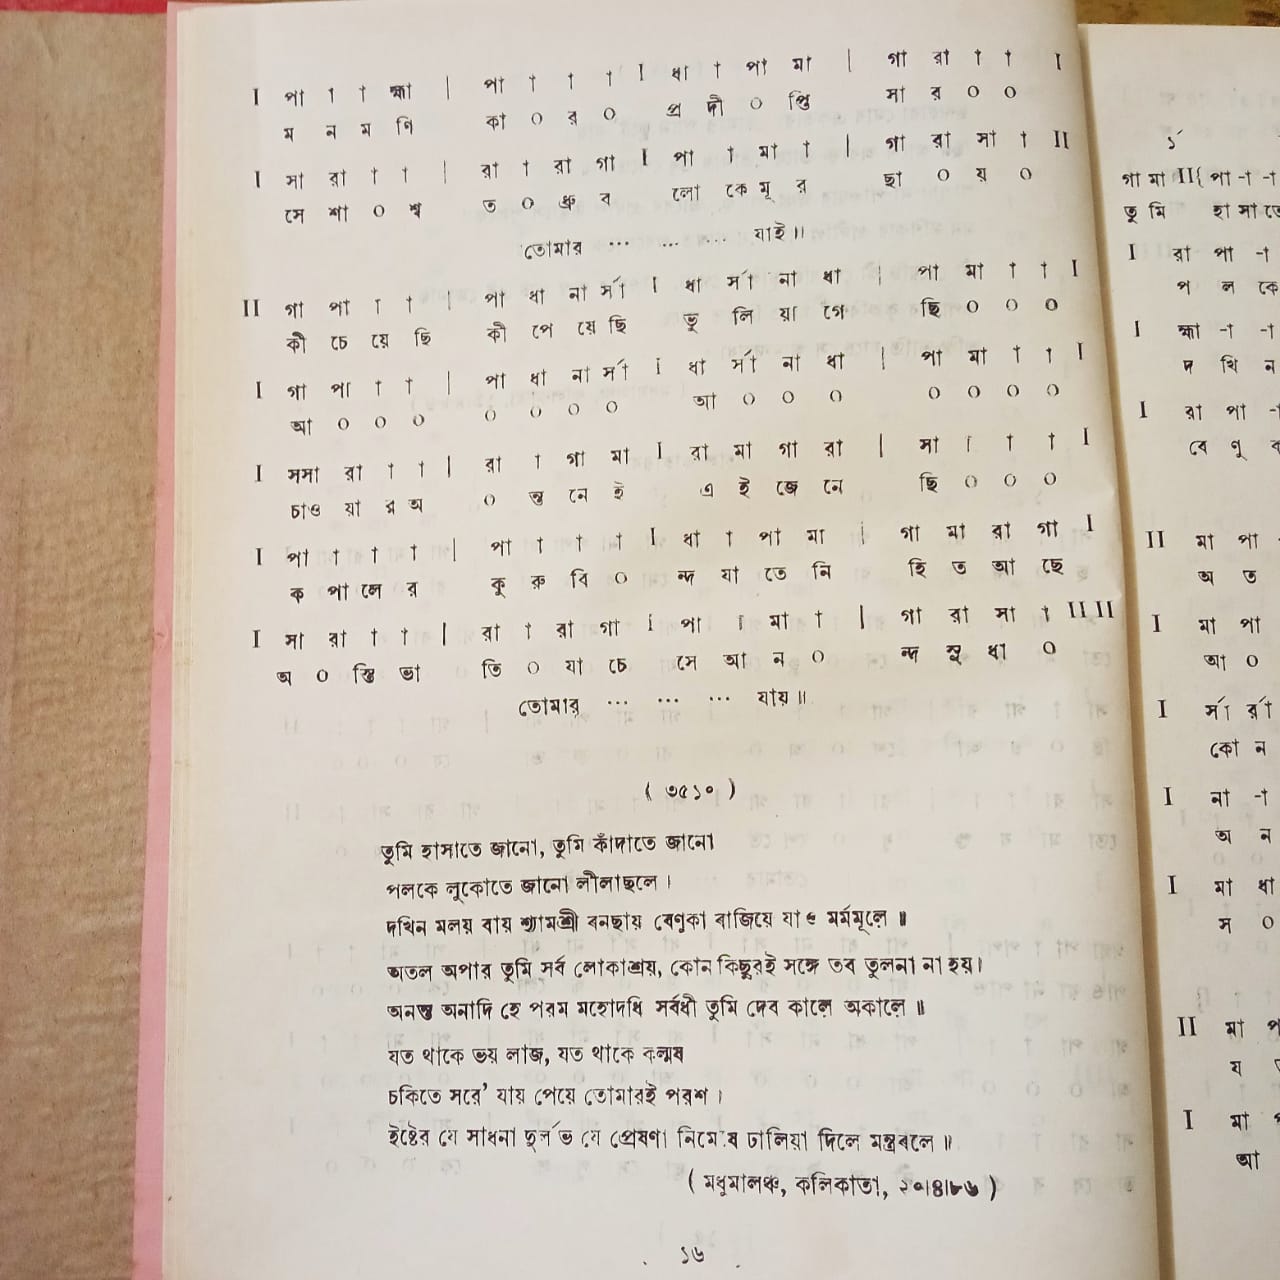 I পা া া হ্মা | পা া া া I ধা া পা মা | গা রা া া I
ম ন ম ণি কা ০ র ০ প্র দী ০ প্তি সা র ০ ০
I সা রা া া | রা া রা গা I পা া মা া | গা রা সা া II
সে শা ০ শ্ব ত ০ ধ্রু ব লো কে মূ র ছা ০ য় ০
তোমার ... ... ... যাই॥
II গা পা া া | পা ধা না র্সা I ধা র্সা না ধা | পা মা া া I
কী চে য়ে ছি কী পে য়ে ছি ভু লি য়া গে ছি ০ ০ ০
I গা পা া া | পা ধা না র্সা I ধা র্সা না ধা | পা মা া া I
আ ০ ০ ০ ০ ০ ০ ০ আ ০ ০ ০ ০ ০ ০ ০
I সসা রা া া | রা া গা মা I রা মা গা রা | সা া া া I
চাও য়া র অ ০ ন্ত নে ই এ ই জে নে ছি ০ ০ ০
I পা া া া | পা া া া I ধা া পা মা | গা মা রা গা I
ক পা লে র কু রু বি ০ ন্দ যা তে নি হি ত আ ছে
I সা রা া া | রা া রা গা I পা া মা া | গা রা সা া II II
অ ০ স্তি ভা তি ০ যা চে সে আ ন ০ ন্দ সু ধা ০
তোমার ... ... ... যায়॥
( ৩৫১০ )
তুমি হাসাতে জানো, তুমি কাঁদাতে জানো
পলকে লুকোতে জানো লীলাছলে।
দখিন মলয় বায় শ্যামশ্রী বনছায় বেণুকা বাজিয়ে যাও মর্মমূলে॥
অতল অপার তুমি সর্ব লোকাশ্রয়, কোন কিছুরই সঙ্গে তব তুলনা না হয়।
অনন্ত অনাদি হে পরম মহোদধি সর্বধী তুমি দেব কালে অকালে॥
যত থাকে ভয় লাজ, যত থাকে কল্মষ
চকিতে সরে' যায় পেয়ে তোমারই পরশ।
ইষ্টের যে সাধনা দুর্লভ যে প্রেষণা নিমেষে ঢালিয়া দিলে মন্ত্রবলে॥
( মধুমালঞ্চ, কলিকাতা, ২০|৪|৮৬ )
১৬
১´
গা মা II{ পা -া -া
তু মি হা সা তে
I রা পা -া
প ল কে
I হ্মা -া -া
দ খি ন
I রা পা
বে ণু
II মা পা
অ ত
I মা পা
আ ০
I র্সা র্রা
কো ন
I না -া
অ ন
I মা ধা
স ০
II মা
য
I মা
আ